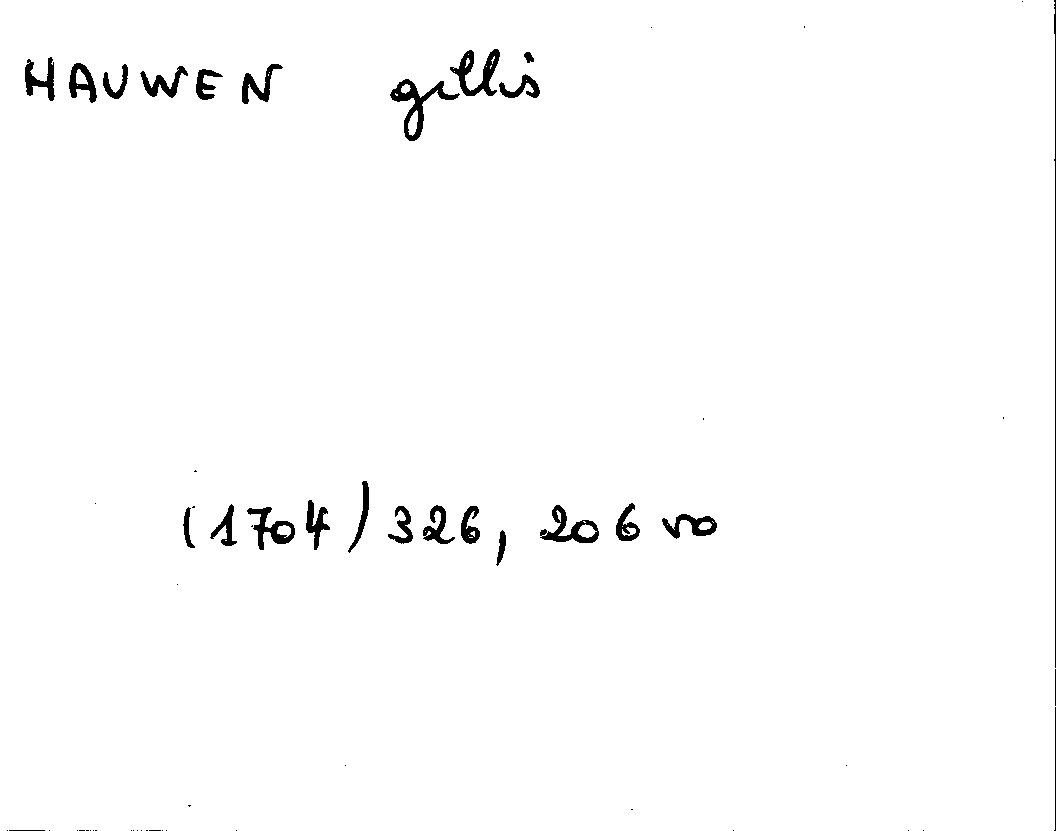 HAUWEN gillis
(1704) 326, 206 vo